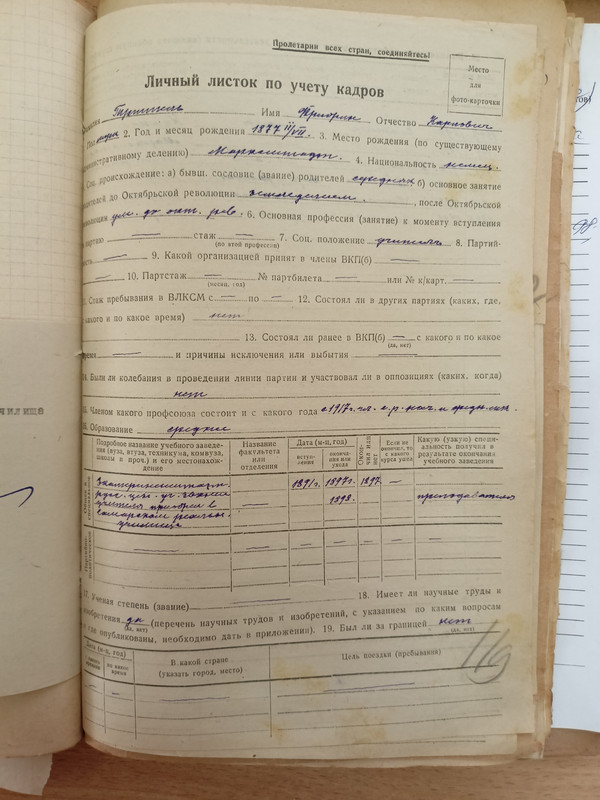 Пролетарии всех стран, соединяйтесь!
Личный листок по учету кадров
Место
для
фото-карточки
Имя Отчество Карлович
2. Год и месяц рождения 1877 3. Место рождения (по существующему
административному делению) Марксштадт. 4. Национальность немец.
Соц. происхождение: а) бывш. сословие (звание) родителей б) основное занятие
родителей до Октябрьской революции , после Октябрьской
ум. до окт. рев. 6. Основная профессия (занятие) к моменту вступления
партию — стаж — 7. Соц. положение учитель 8. Партий-
(по этой профессии)
ность — 9. Какой организацией принят в члены ВКП(б) —
— 10. Партстаж — № партбилета — или № к/карт. —
(месяц, год)
Стаж пребывания в ВЛКСМ с — по — 12. Состоял ли в других партиях (каких, где,
какого и по какое время) нет
13. Состоял ли ранее в ВКП(б) — с какого и по какое
(да, нет)
время — и причины исключения или выбытия —
14. Были ли колебания в проведении линии партии и участвовал ли в оппозициях (каких, когда)
нет
15. Членом какого профсоюза состоит и с какого года с 1917 г.
16. Образование среднее
Подробное название учебного заведе-
ния (вуза, втуза, техникума, комвуза,
школы и проч.) и его местонахож-
дение
Название
факультета
или
отделения
Дата (м-ц, год)
вступ-
ления
оконча-
ния или
ухода
Окон-
чил или
нет
Если не
окончил, то
с какого
курса ушел
Какую (узкую) специ-
альность получил в
результате окончания
учебного заведения
1891 г. 1897 г. 1897 —
учителя при
1898. преподавателя
самарском реальн.
училище
17. Ученая степень (звание) — 18. Имеет ли научные труды и
изобретения да (перечень научных трудов и изобретений, с указанием по каким вопросам
(да, нет)
и где опубликованы, необходимо дать в приложении). 19. Был ли за границей нет
(да, нет)
Дата (м-ц, год)
по какое
время
В какой стране
(указать город, место)
Цель поездки (пребывания)